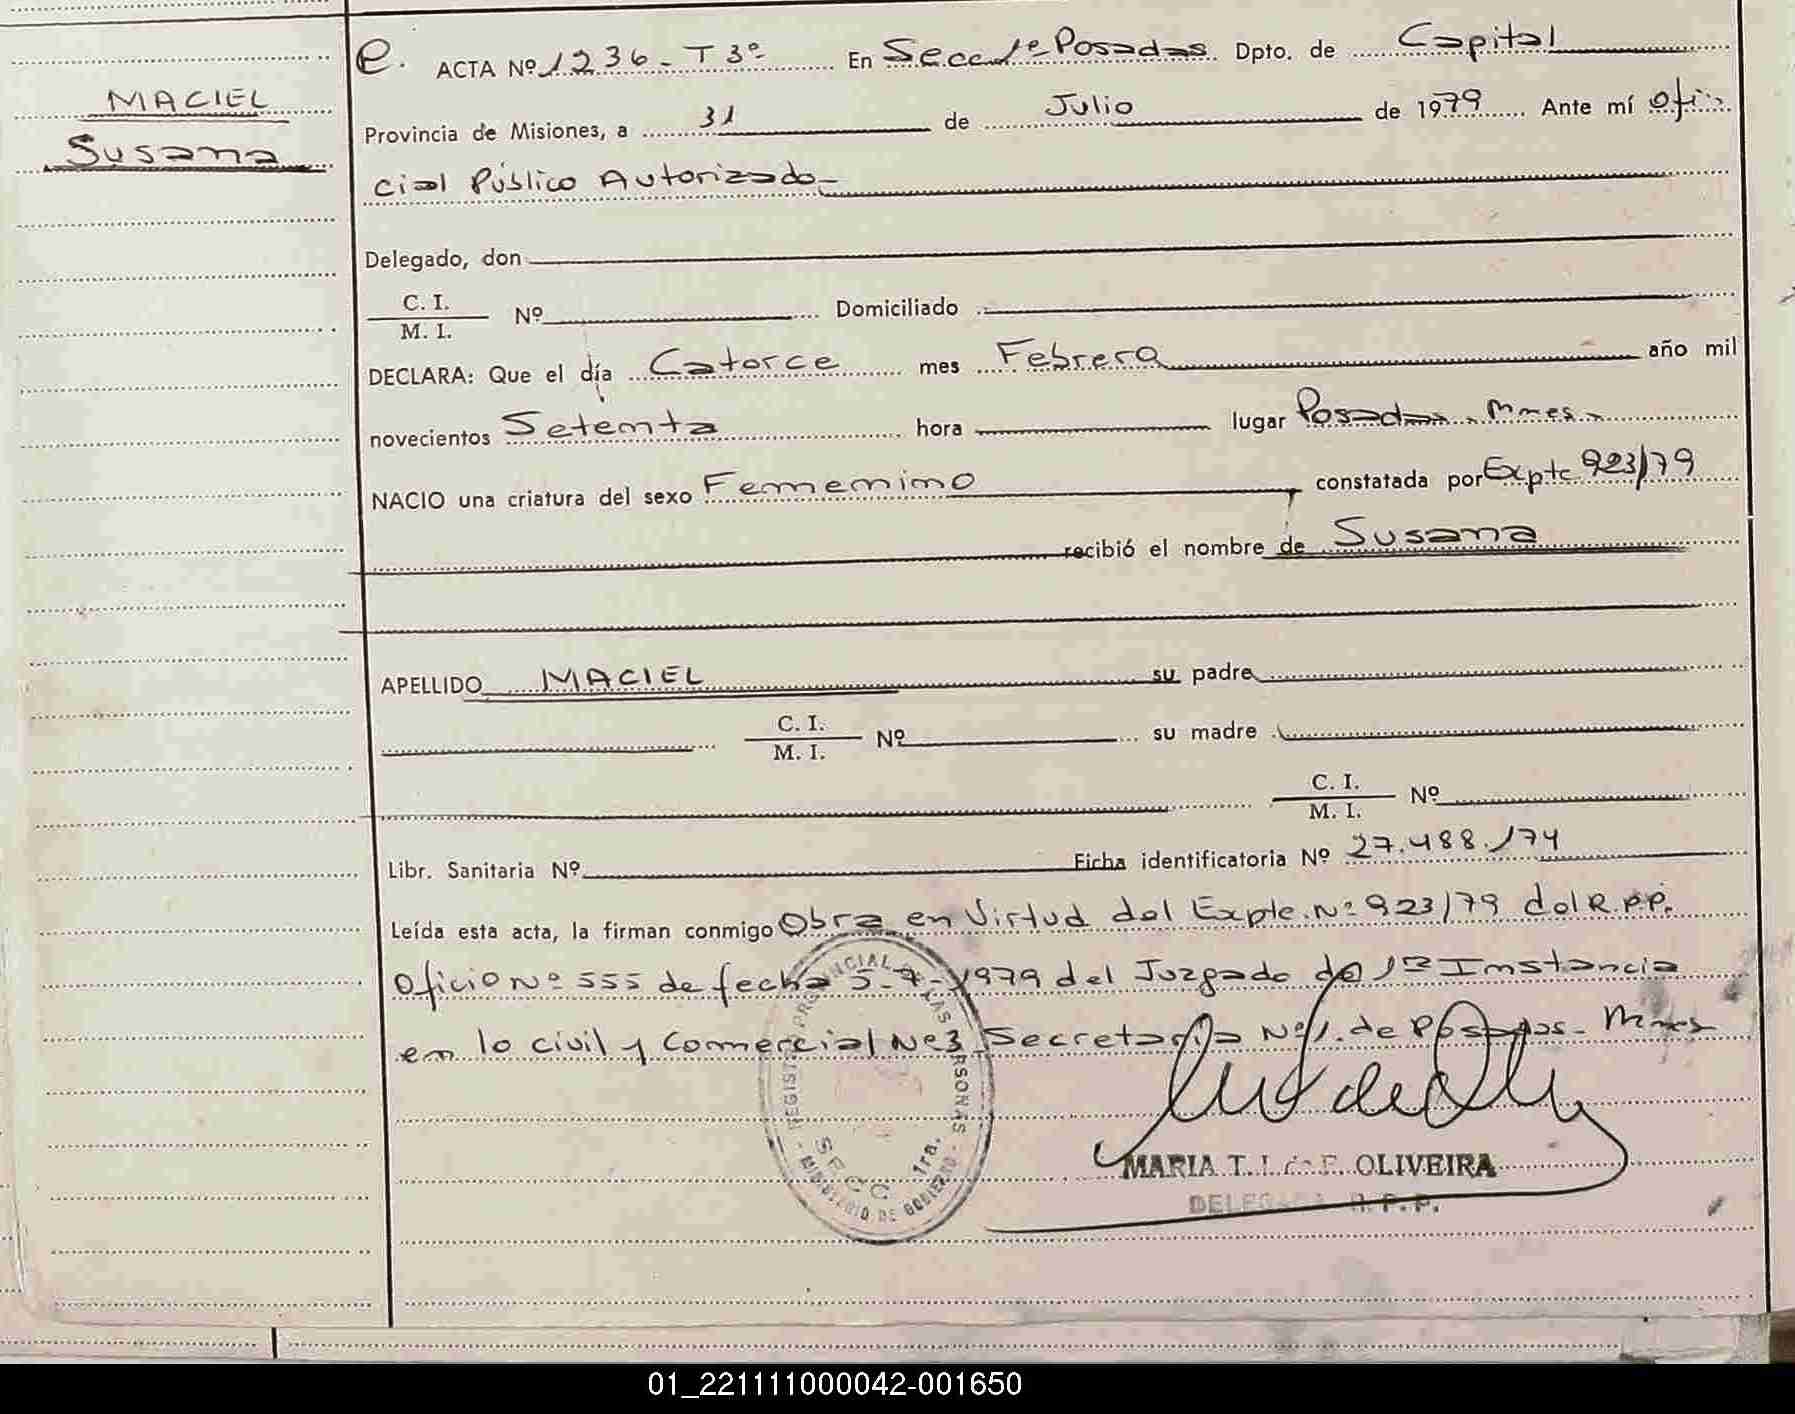 MACIEL
Susana
e. ACTA Nº 1236 - T 3º En Secc 1ª Posadas Dpto. de Capital
Provincia de Misiones, a 31 de Julio de 1979 Ante mí Ofi-
cial Público Autorizado-
Delegado, don
C. I.
M. I. Nº Domiciliado
DECLARA: Que el día Catorce mes Febrero año mil
novecientos Setenta hora lugar Posadas. Mnes.
NACIO una criatura del sexo Femenino constatada por Expte 923/79
recibió el nombre de Susana
APELLIDO MACIEL su padre
C. I.
M. I. Nº su madre
C. I.
M. I. Nº
Libr. Sanitaria Nº Ficha identificatoria Nº 27.488.174
Leída esta acta, la firman conmigo Obra en Virtud del Expte. Nº 923/79 del R.P.P.
Oficio Nº 555 de fecha 5-7-1979 del Juzgado de 1ra Instancia
en lo civil y Comercial Nº 3 Secretaría Nº 1. de Posadas - Mnes
REGISTRO PROVINCIAL DE LAS PERSONAS
SECC. 1ra.
MINISTERIO DE GOBIERNO
MARIA T. I. de F. OLIVEIRA
DELEGADA R. P. P.
01_221111000042-001650